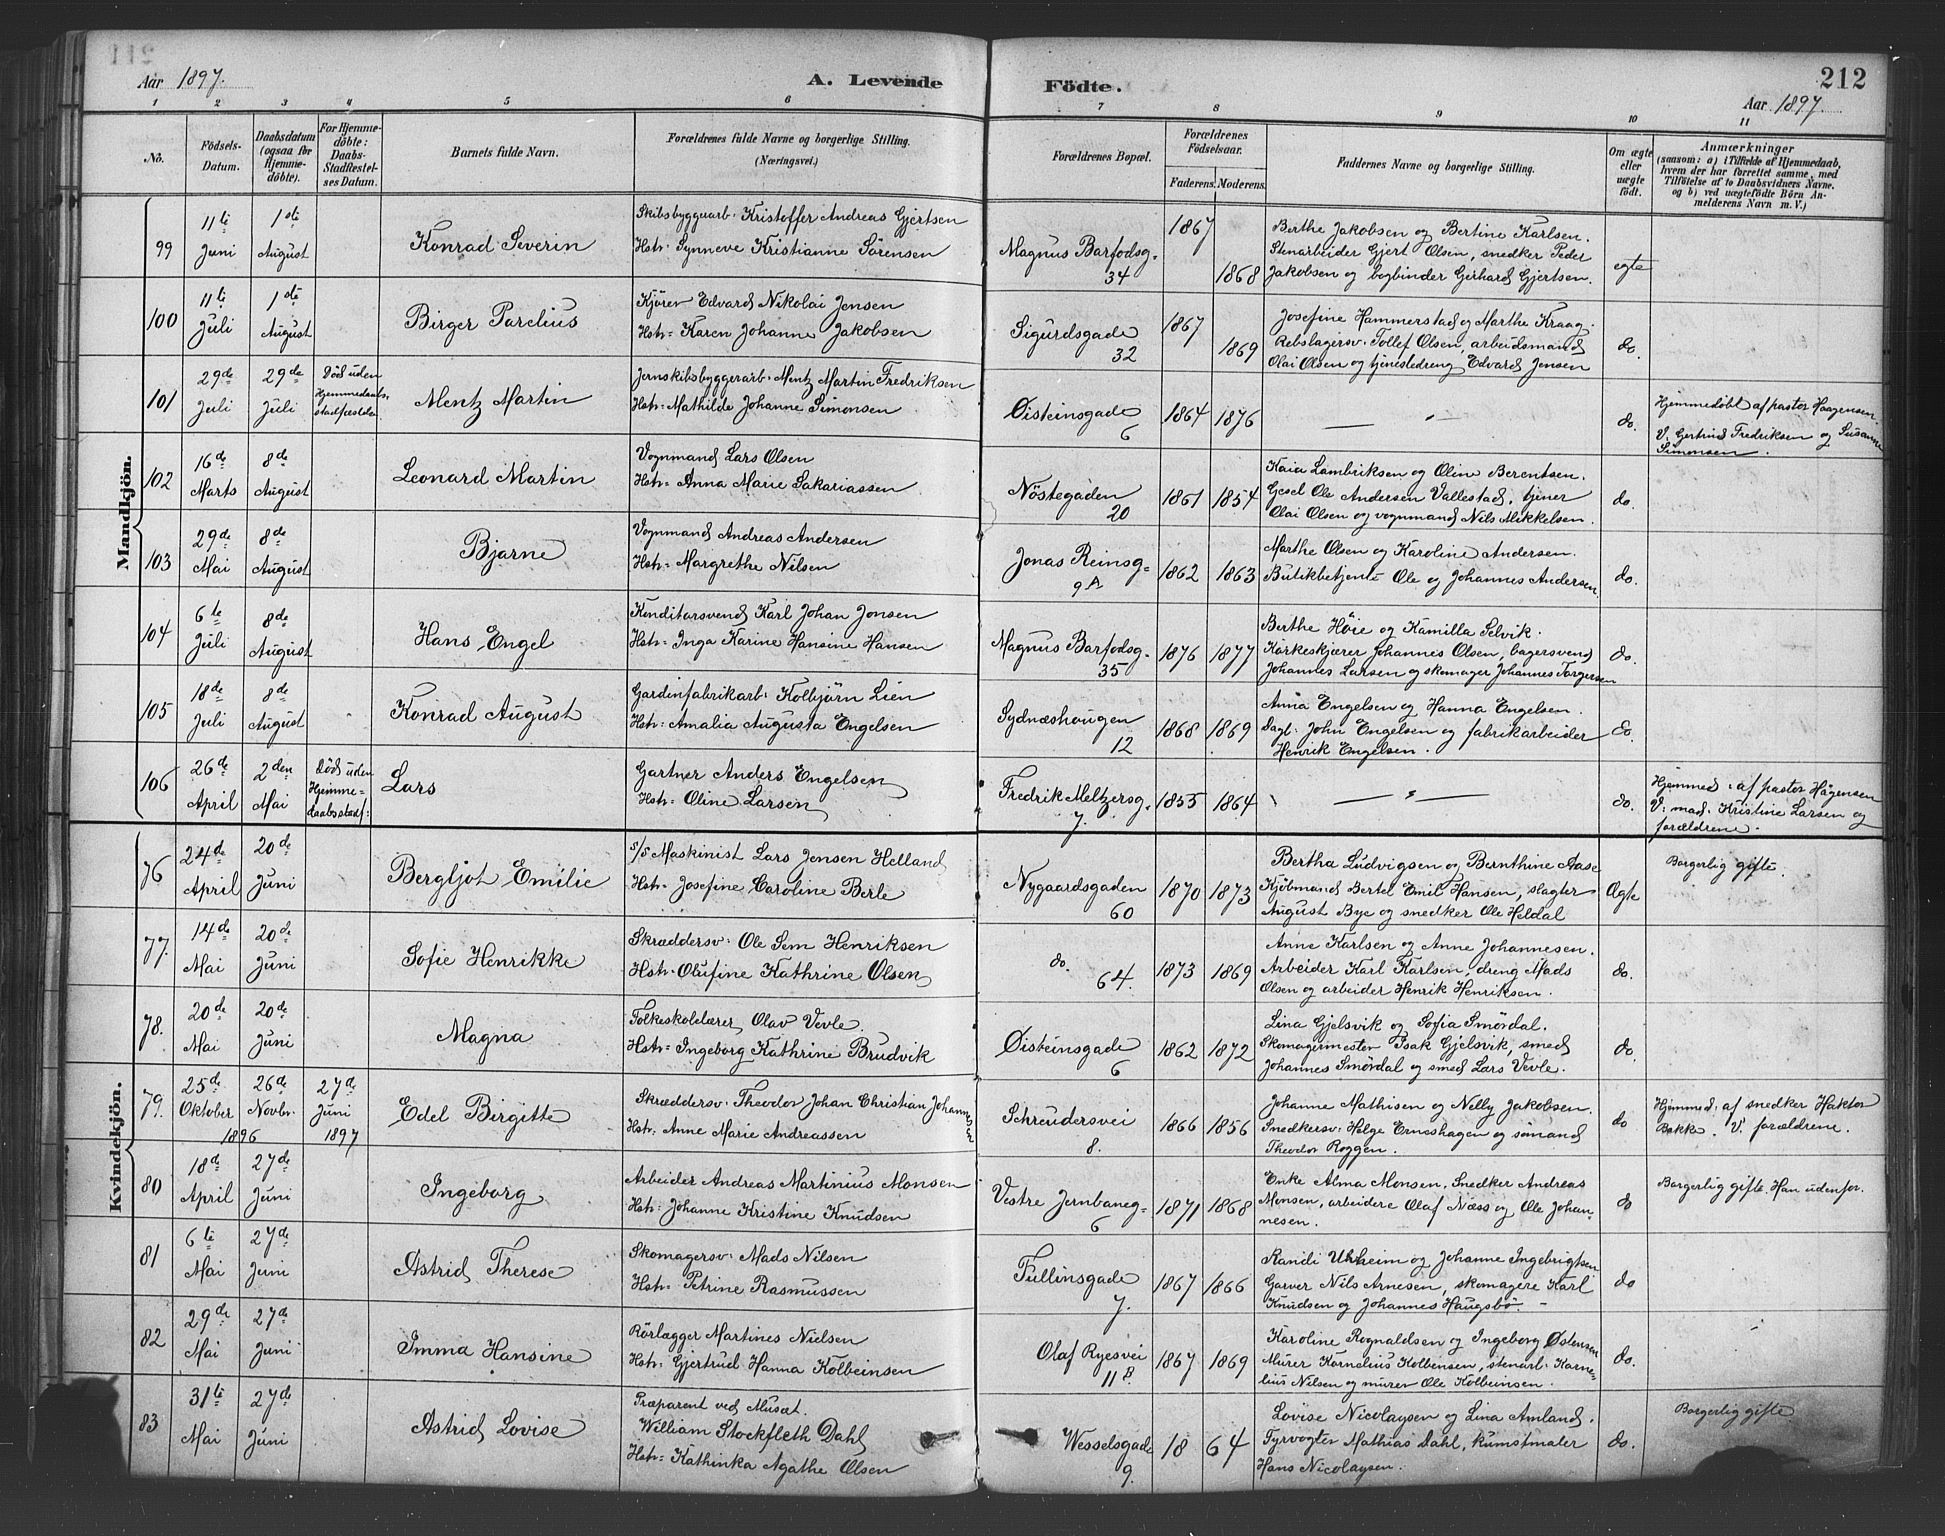 Aar 1897.
A. Levende
Födte.
212
Aar 1897.
1 2 3 4 5 6 7 8 9 10 11
No.
Födsels-Datum.
Daabsdatum (ogsaa for Hjemmedöbte).
For Hjemmedöbte: Daabs-Stadfæstelses Datum.
Barnets fulde Navn.
Forældrenes fulde Navne og borgerlige Stilling.
(Næringsvei.)
Forældrenes Bopæl.
Forældrenes Födselsaar.
Faderens. Moderens.
Faddernes Navne og borgerlige Stilling.
Om ægte eller uægte födt.
Anmærkninger
(saasom: a) i Tilfælde af Hjemmedaab, hvem der har forrettet samme, med Tilföielse af to Daabsvidners Navne, og b) ved uægtefödte Börn Anmelderens Navn m. V.)
Mandkjön.
99 11te Juni 1ste August Konrad Severin
Skibsbyggearb. Kristoffer Andreas Gjertsen
Hstr: Synneve Kristianne Sörensen
Magnus Barfodsg. 34 1867 1868
Berthe Jakobsen og Bertine Karlsen.
Stenarbeider Gjert Olsen, snedker Peder
Jakobsen og bogbinder Gerhard Gjertsen.
egte
100 11te Juli 1ste August Birger Parelius
Kjörer Edvard Nikolai Jensen
Hstr: Karen Johanne Jakobsen
Sigurdsgade 32 1867 1869
Josefine Hammerstad og Marthe Kraag.
Rebslagersv. Tollef Olsen, arbeidsmand
Olai Olsen og tjenestedreng Edvard Jensen
do.
101 29de Juli 29de Juli Död uden Hjemmedaabsstadfæstelse Mentz Martin
Jernskibsbyggerarb. Mentz Martin Fredriksen
Hstr: Mathilde Johanne Simonsen
Øisteinsgade 6 1864 1876 — " — do.
Hjemmedöbt af pastor Haagensen
V. Gertrud Fredriksen og Susanne
Simonsen.
102 16de Marts 8de August Leonard Martin
Vognmand Lars Olsen
Hstr: Anna Marie Sakariassen
Nöstegaden 20 1861 1854
Kaia Lambriksen og Oline Berentsen.
Gesel Ole Andersen Vallestad, tjener
Olai Olsen og vognmand Nils Mikkelsen.
do.
103 29de Mai 8de August Bjarne
Vognmand Andreas Andersen
Hstr: Margrethe Nilsen
Jonas Reinsg. 9A 1862 1863
Marthe Olsen og Karoline Andersen.
Butikbetjente Ole og Johannes Andersen.
do.
104 6te Juli 8de August Hans Engel
Konditorsvend Karl Johan Jonsen
Hstr: Inga Karine Hansine Hansen
Magnus Barfodsg. 35 1876 1877
Berthe Höie og Kamilla Selvik.
Korkeskjærer Johannes Olsen, bagersvend
Johannes Larsen og skomager Johannes Torgersen
do.
105 18de Juli 8de August Konrad August
Gardinfabrikarb. Kolbjörn Lien
Hstr: Amalia Augusta Engelsen
Sydnæshougen 12 1868 1869
Anna Engelsen og Hanna Engelsen.
Dagl: John Engelsen og fabrikarbeider
Henrik Engelsen.
do.
106 26de April 2den Mai Död uden Hjemmedaabsstadf: Lars
Gartner Anders Engelsen
Hstr: Oline Larsen
Fredrik Meltzersg. 7. 1855 1864 — " — do.
Hjemmed: af pastor Hågensen
V: mad. Kristine Larsen og
forældrene.
Kvindekjön.
76 24de April 20de Juni Bergljot Emilie
s/s Maskinist Lars Jensen Helland
Hstr: Josefine Caroline Berle
Nygaardsgaden 60 1870 1873
Bertha Ludvigsen og Bernthine Aase
Kjöbmand Bertel Emil Hansen, slagter
August Bye og snedker Ole Heldal
Ægte
Borgerlig gifte.
77. 14de Mai 20de Juni Sofie Henrikke
Skræddersv: Ole Sem Henriksen
Hstr: Olufine Kathrine Olsen
do. 64. 1873 1869
Anne Karlsen og Anne Johannesen.
Arbeider Karl Karlsen, dreng Mads
Olsen og arbeider Henrik Henriksen.
do.
78. 20de Mai 20de Juni Magna
Folkeskolelærer Olav Vevle.
Hstr: Ingeborg Kathrine Brudvik
Øisteinsgade 6 1862 1872
Lina Gjelsvik og Sofia Smördal.
Skomagermester Isak Gjelsvik, smed
Johannes Smördal og smed Lars Vevle.
do.
79. 25de Oktober 26de Novbr. 1896 27de Juni 1897 Edel Birgitte
Skræddersv: Theodor Johan Christian Johannsen
Hstr: Anne Marie Andreassen
Schreudersvei 8. 1866 1856
Johanne Mathisen og Nelly Jakobsen.
Snedkersv: Helge Erneshagen og sömand
Theodor Roggen.
do
Hjemmed: af snedker Haktor
Bakke. V. forældrene.
80 18de April 27de Juni Ingeborg
Arbeider Andreas Martinius Monsen
Hstr: Johanne Kristine Knudsen
Vestre Jernbaneg. 6 1871 1868
Enke Alma Monsen, Snedker Andreas
Monsen, arbeidere Olaf Næss og Ole Johannesen.
do
Borgerlig gifte. Han udenfor.
81 6te Mai 27de Juni Astrid Therese
Skomagersv: Mads Nilsen
Hstr: Petrine Rasmussen
Fullinsgade 7. 1867 1866
Randi Utheim og Johanne Ingebrigtsen
Garver Nils Arnesen, skomagere Karl
Knudsen og Johannes Haugsbö.
do
82 29de Mai 27de Juni Imma Hansine
Rörlægger Martines Nielsen
Hstr: Gjertrud Hanna Kolbeinsen
Olaf Ryesvei 11 B. 1867 1869
Karoline Rognaldsen og Ingeborg Østensen
Murer Kornelius Kolbensen, stenarb. Kornelius Nilsen og murer Ole Kolbeinsen.
do.
83 31te Mai 27de Juni Astrid Lovise
Præparent ved Musæt.
William Stockfleth Dahl
Hstr: Kathinka Agathe Olsen
Wesselsgade 9. 18 64
Lovise Nicolaysen og Lina Amland.
Fyrvogter Mathias Dahl, kunstmaler
Hans Nicolaysen.
do.
Borgerlig gifte